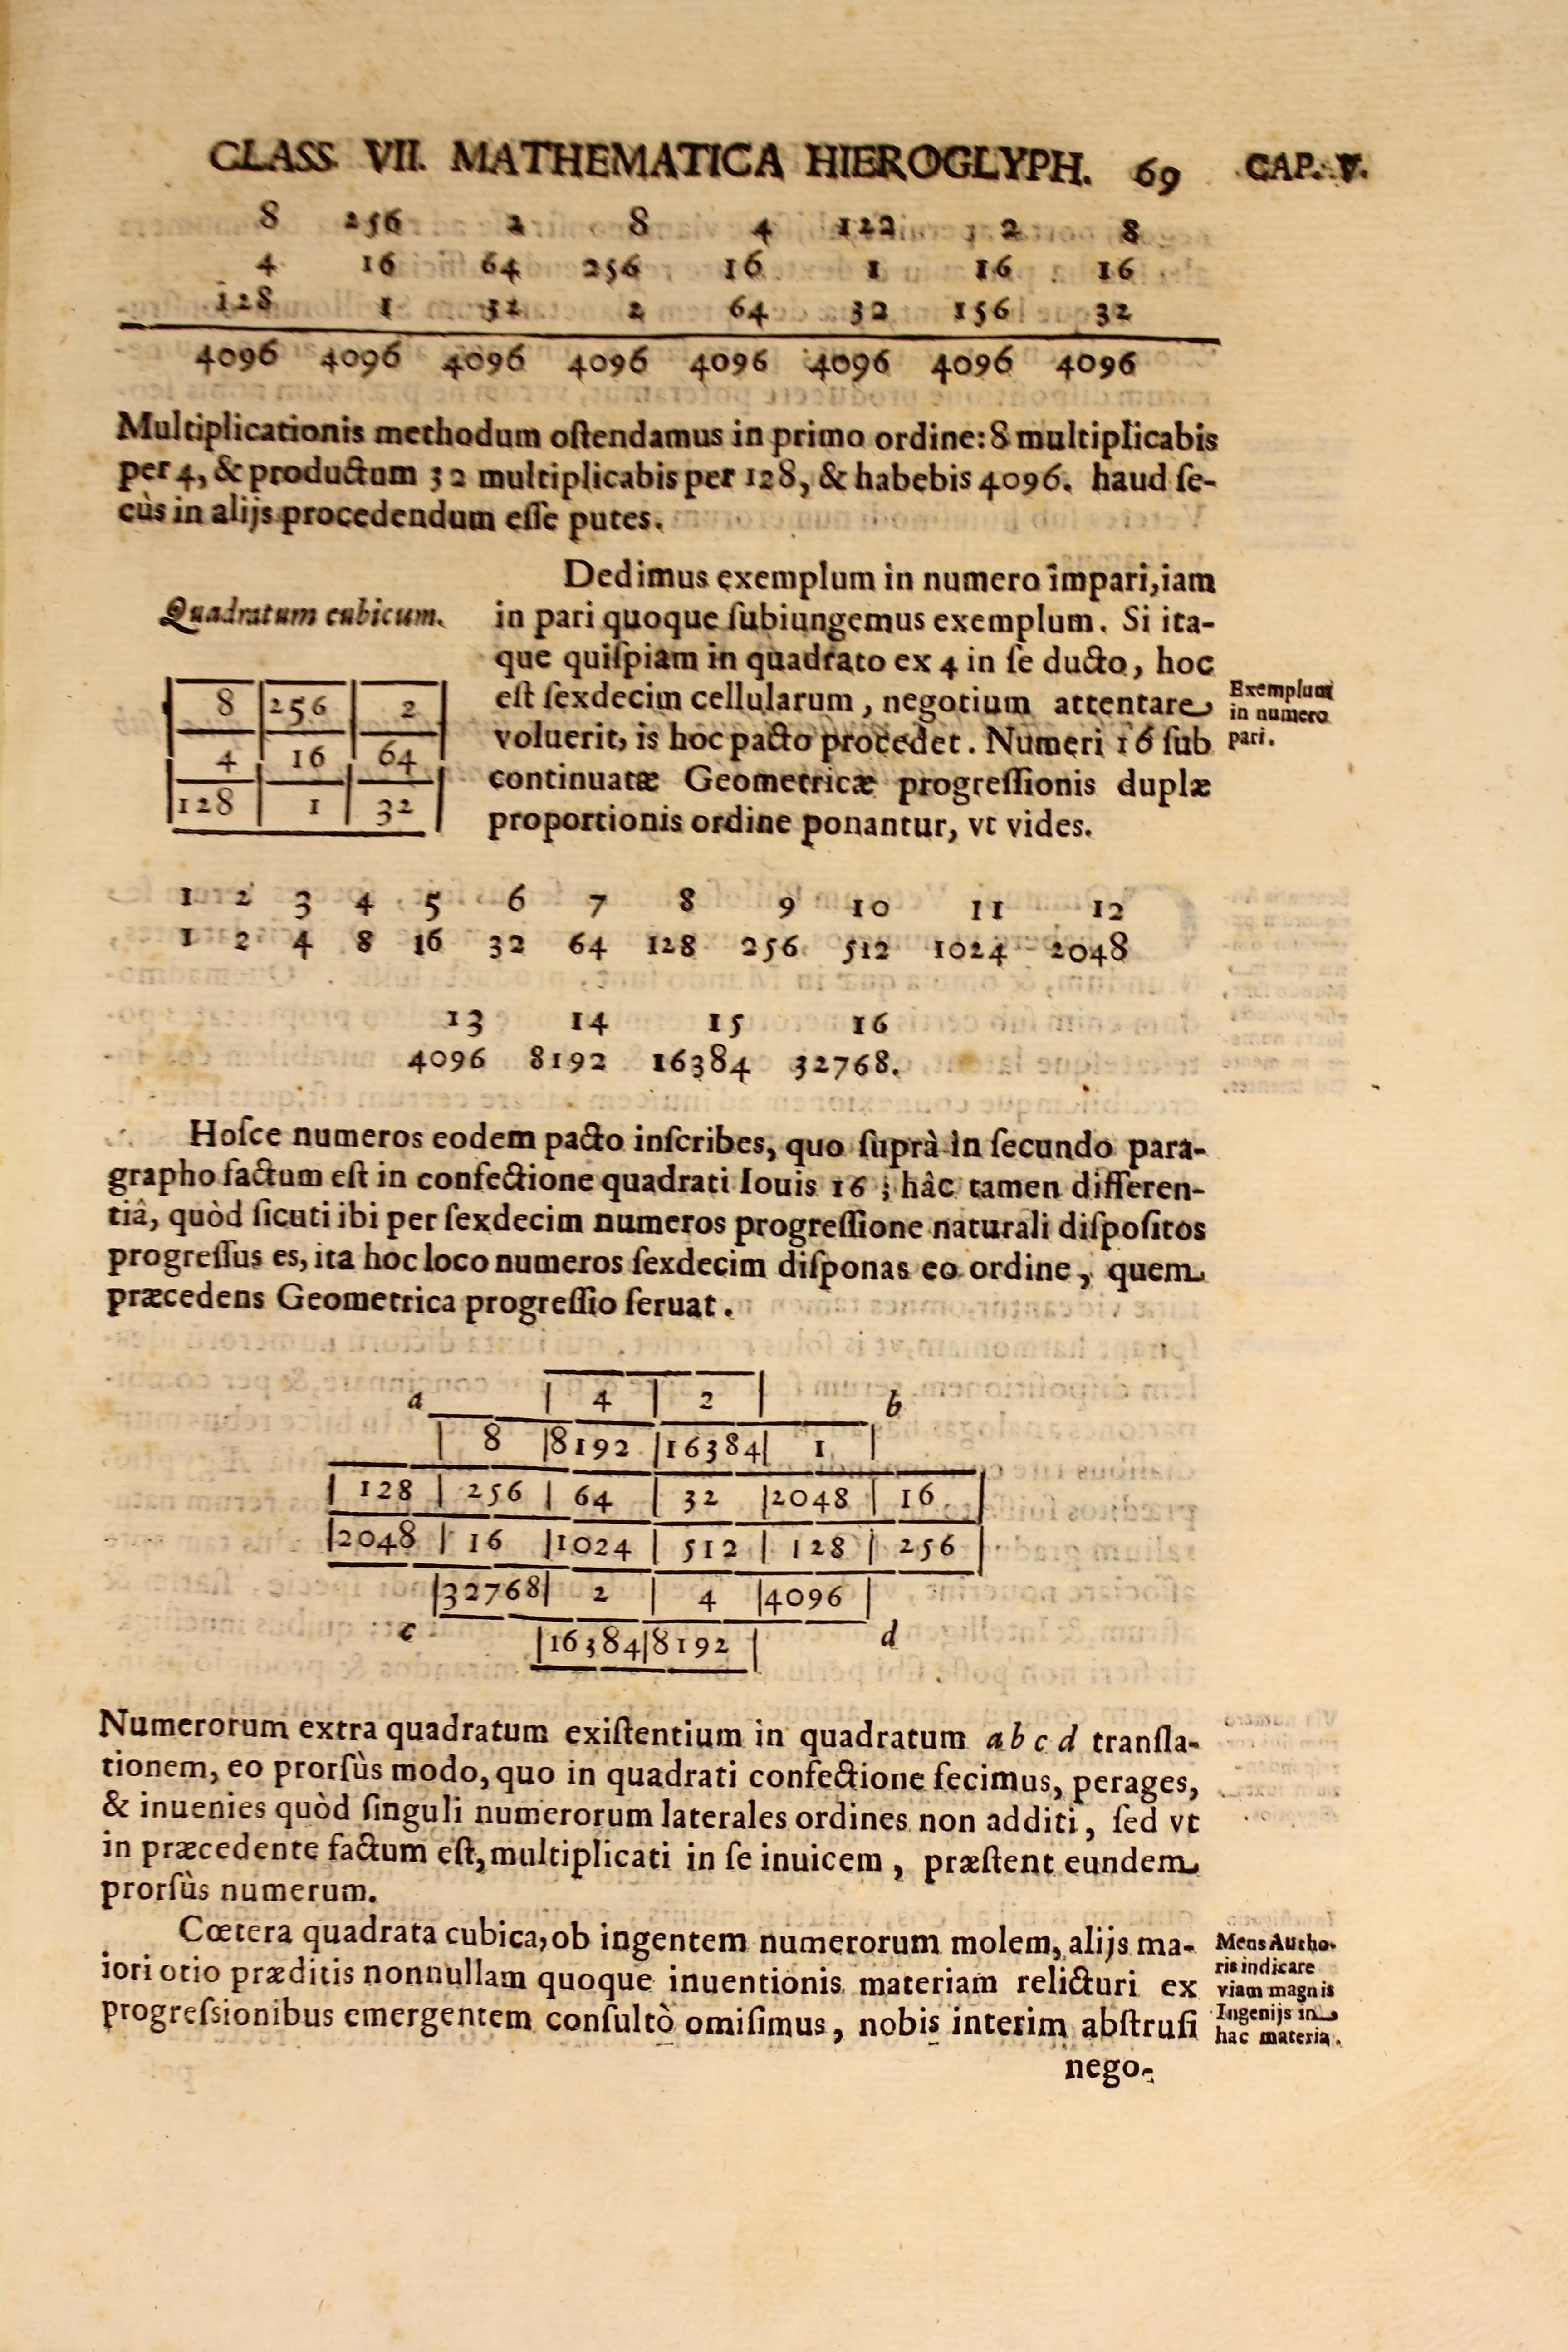 CLASS. VII. MATHEMATICA HIEROGLYPH. 69 CAP. V.
8 256 2 8 4 122 2 8
4 16 64 256 16 1 16 16
128 1 32 2 64 32 156 32
4096 4096 4096 4096 4096 4096 4096 4096
Multiplicationis methodum oſtendamus in primo ordine: 8 multiplicabis
per 4, & productum 32 multiplicabis per 128, & habebis 4096. haud ſe-
cùs in alijs procedendum eſſe putes.
Dedimus exemplum in numero impari, iam
Quadratum cubicum.
in pari quoque ſubiungemus exemplum. Si ita-
que quiſpiam in quadrato ex 4 in ſe ducto, hoc
eſt ſexdecim cellularum, negotium attentare
voluerit, is hoc pacto procedet. Numeri 16 ſub
continuatæ Geometricæ progreſſionis duplæ
proportionis ordine ponantur, vt vides.
Exemplum
in numero
pari.
8 256 2
4 16 64
128 1 32
1 2 3 4 5 6 7 8 9 10 11 12
1 2 4 8 16 32 64 128 256 512 1024 2048
13 14 15 16
4096 8192 16384 32768.
Hoſce numeros eodem pacto inſcribes, quo ſuprà in ſecundo para-
grapho factum eſt in confectione quadrati Iouis 16; hâc tamen differen-
tiâ, quòd ſicuti ibi per ſexdecim numeros progreſſione naturali diſpoſitos
progreſſus es, ita hoc loco numeros ſexdecim diſponas eo ordine, quem
præcedens Geometrica progreſſio ſeruat.
a 4 2 b
8 8192 16384 1
128 256 64 32 2048 16
2048 16 1024 512 128 256
32768 2 4 4096
c 16384 8192 d
Numerorum extra quadratum exiſtentium in quadratum a b c d transla-
tionem, eo prorſùs modo, quo in quadrati confectione fecimus, perages,
& inuenies quòd ſinguli numerorum laterales ordines non additi, ſed vt
in præcedente factum eſt, multiplicati in ſe inuicem, præſtent eundem
prorſùs numerum.
Cœtera quadrata cubica, ob ingentem numerorum molem, alijs ma-
iori otio præditis nonnullam quoque inuentionis materiam relicturi ex
progreſsionibus emergentem conſultò omiſimus, nobis interim abſtruſi
Mens Autho-
ris indicare
viam magnis
Ingenijs in
hac materia.
nego-